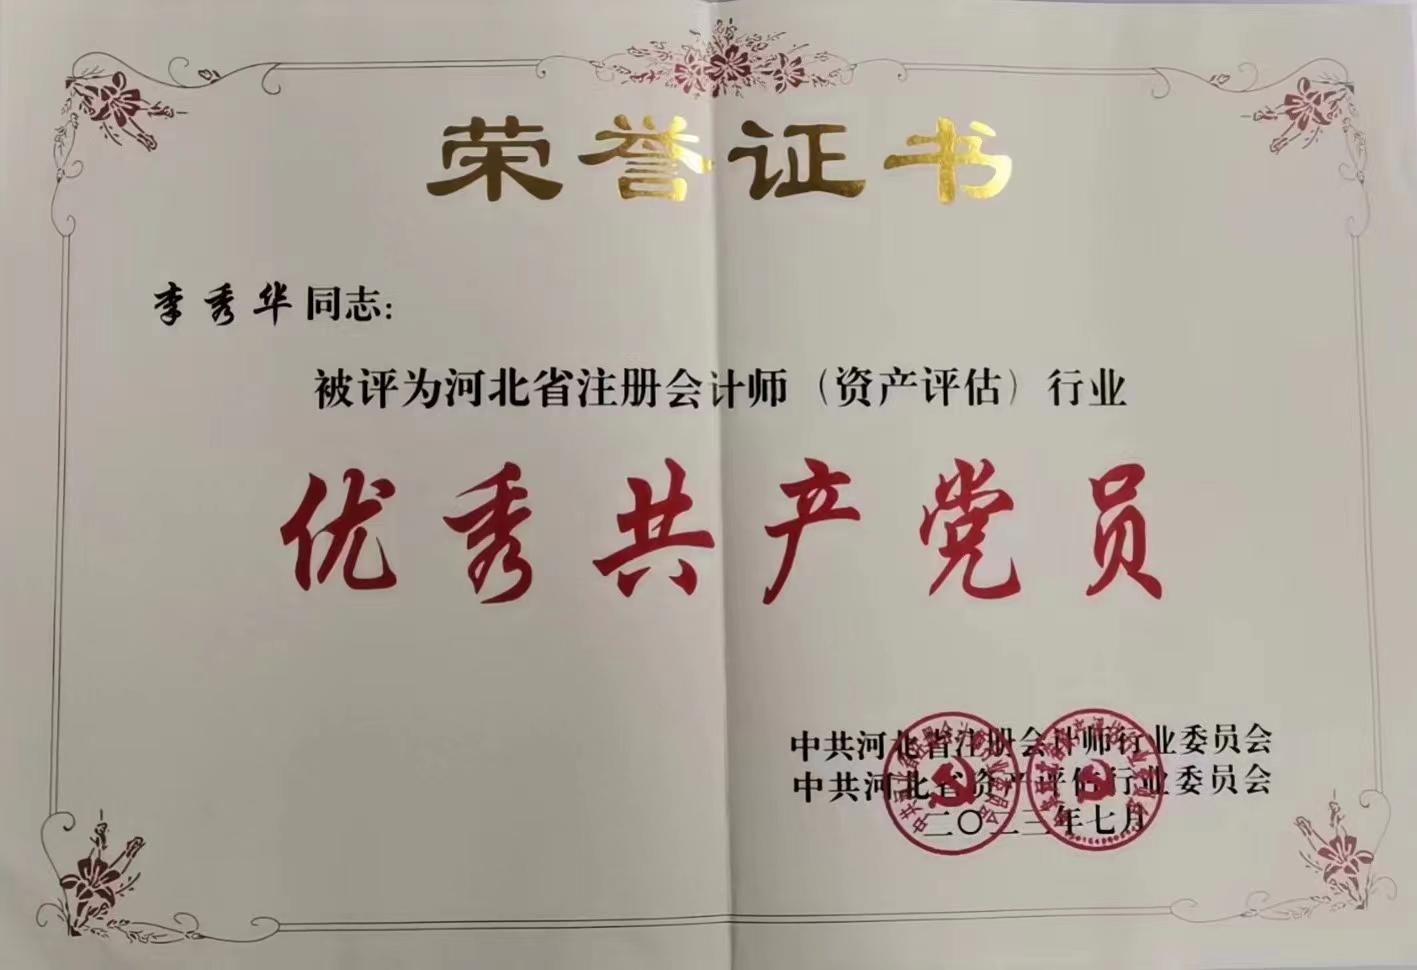 荣誉证书
李秀华同志：
被评为河北省注册会计师（资产评估）行业
优秀共产党员
中共河北省注册会计师行业委员会
中共河北省资产评估行业委员会
二〇二三年七月